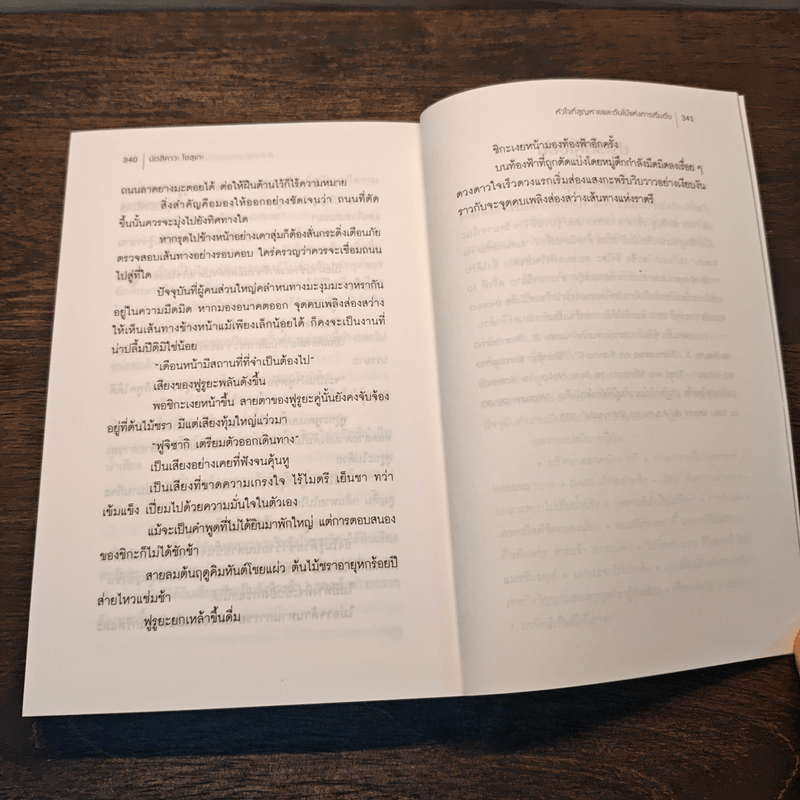 340 มัตสึคาวะ โยสุเกะ
ถนนลาดยางมะตอยได้ ต่อให้ฝืนต้านไว้ก็ไร้ความหมาย
สิ่งสำคัญคือมองให้ออกอย่างชัดเจนว่า ถนนที่ตัด
ขึ้นนั้นควรจะมุ่งไปยังทิศทางใด
หากรุดไปข้างหน้าอย่างเดาสุ่มก็ต้องสั่นกระดิ่งเตือนภัย
ตรวจสอบเส้นทางอย่างรอบคอบ ใคร่ครวญว่าควรจะเชื่อมถนน
ไปสู่ที่ใด
ปัจจุบันที่ผู้คนส่วนใหญ่คลำหนทางมะงุมมะงาหรากัน
อยู่ในความมืดมิด หากมองอนาคตออก จุดคบเพลิงส่องสว่าง
ให้เห็นเส้นทางข้างหน้าแม้เพียงเล็กน้อยได้ ก็คงจะเป็นงานที่
น่าปลื้มปีติมิใช่น้อย
“เดือนหน้ามีสถานที่ที่จำเป็นต้องไป”
เสียงของฟูรูยะพลันดังขึ้น
พอชิกะเงยหน้าขึ้น สายตาของฟูรูยะคู่นั้นยังคงจับจ้อง
อยู่ที่ต้นไม้ชรา มีแต่เสียงทุ้มใหญ่แว่วมา
“ฟูจิซากิ เตรียมตัวออกเดินทาง”
เป็นเสียงอย่างเคยที่ฟังจนคุ้นหู
เป็นเสียงที่ขาดความเกรงใจ ไร้ไมตรี เย็นชา ทว่า
เข้มแข็ง เปี่ยมไปด้วยความมั่นใจในตัวเอง
แม้จะเป็นคำพูดที่ไม่ได้ยินมาพักใหญ่ แต่การตอบสนอง
ของชิกะก็ไม่ได้ชักช้า
สายลมต้นฤดูคิมหันต์โชยแผ่ว ต้นไม้ชราอายุหกร้อยปี
ส่ายไหวแช่มช้า
ฟูรูยะยกเหล้าขึ้นดื่ม
หัวใจที่สูญหายและต้นไม้แห่งการเริ่มต้น 341
ชิกะเงยหน้ามองท้องฟ้าอีกครั้ง
บนท้องฟ้าที่ถูกตัดแบ่งโดยหมู่ตึกกำลังมืดมิดลงเรื่อย ๆ
ดวงดาวใจเร็วดวงแรกเริ่มส่องแสงกะพริบวิบวาวอย่างเงียบงัน
ราวกับจะจุดคบเพลิงส่องสว่างเส้นทางแห่งราตรี